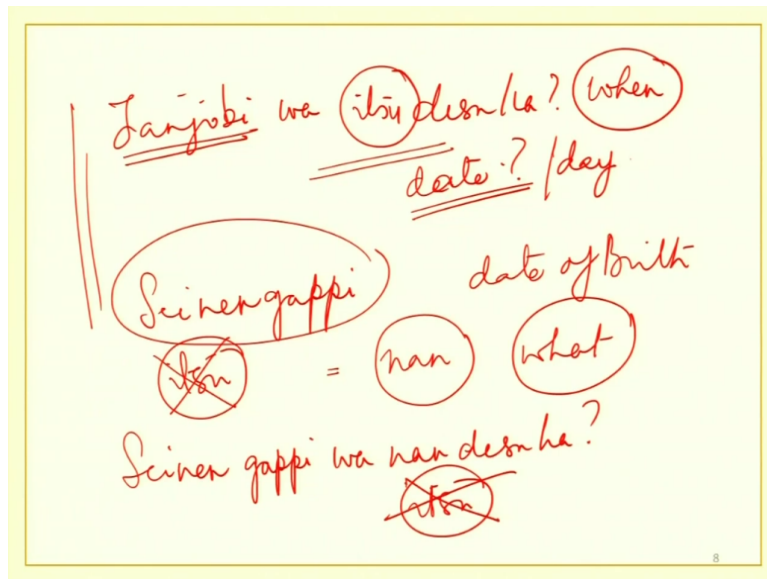 Tanjobi wa itsu desu/ka? when
date? /day
Seinengappi date of Birth
itsu = nan what
Seinen gappi wa nan desu ka?
itsu
8